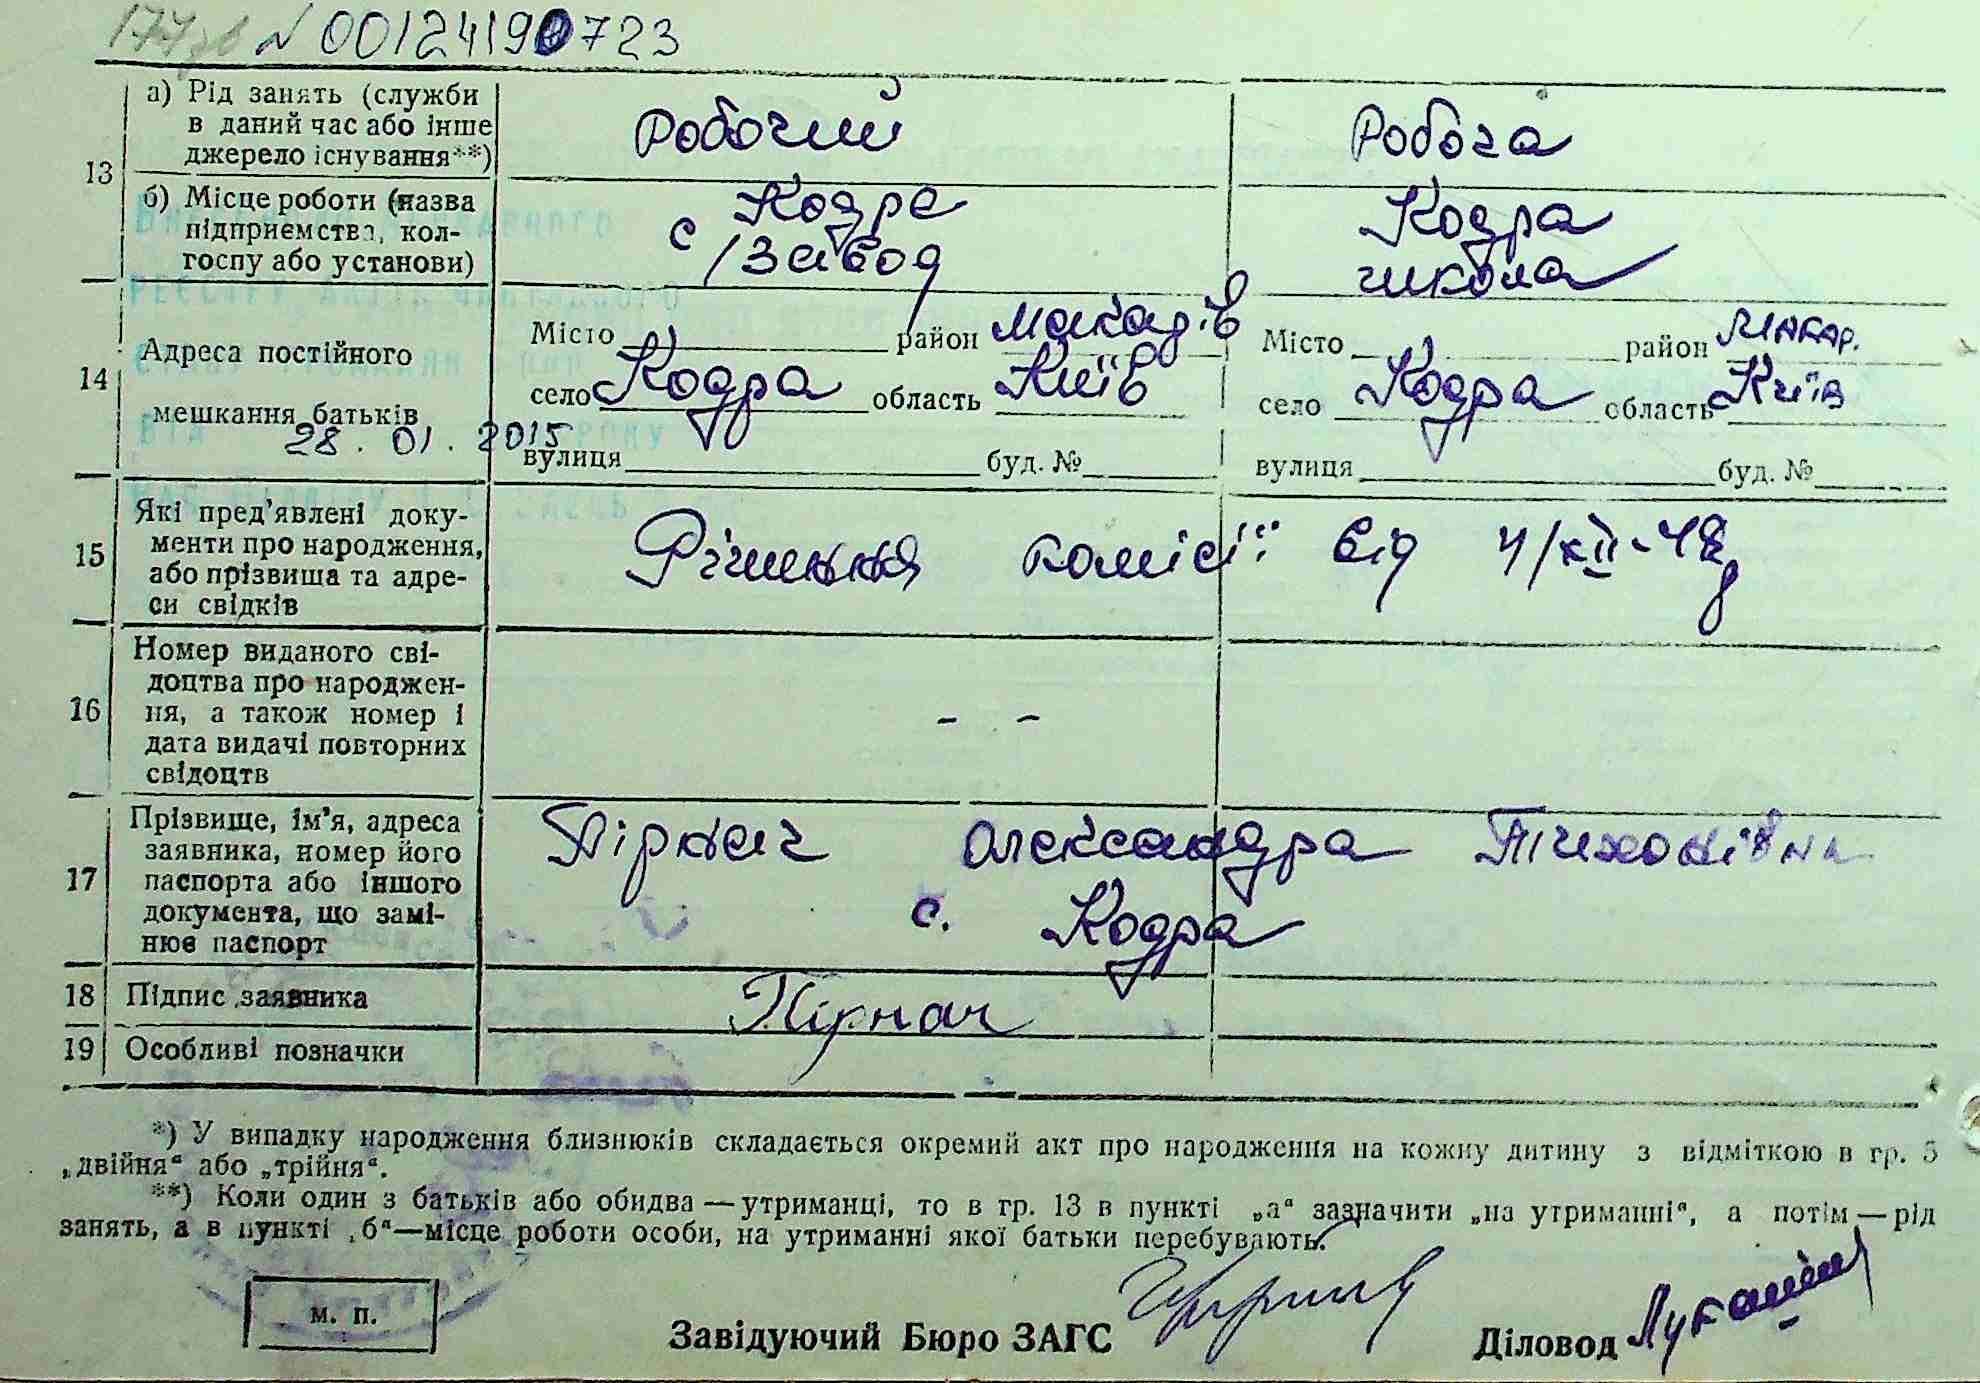 N 00124190723
13
а) Рід занять (служби
в даний час або інше
джерело існування**)
Робочий
Робоча
б) Місце роботи (назва
підприємства, кол-
госпу або установи)
с Кодра
/Завод
Кодра
школа
14
Адреса постійного
мешкання батьків
28.01.2015
Місто район Макарів
село Кодра область Київ
вулиця буд. №
Місто район Макар.
село Кодра область Київ
вулиця буд. №
15
Які пред'явлені доку-
менти про народження,
або прізвища та адре-
си свідків
Рішення комісії від 4/XII-48
16
Номер виданого сві-
доцтва про народжен-
ня, а також номер і
дата видачі повторних
свідоцтв
- -
17
Прізвище, ім'я, адреса
заявника, номер його
паспорта або іншого
документа, що замі-
нює паспорт
Пірнач Олександра Тихонівна
с. Кодра
18 Підпис заявника
Пірнач
19 Особливі позначки
*) У випадку народження близнюків складається окремий акт про народження на кожну дитину з відміткою в гр. 5
„двійня“ або „трійня“.
**) Коли один з батьків або обидва — утриманці, то в гр. 13 в пункті „а“ зазначити „на утриманні“, а потім — рід
занять, а в пункті „б“—місце роботи особи, на утриманні якої батьки перебувають.
м. п.
Завідуючий Бюро ЗАГС
Діловод